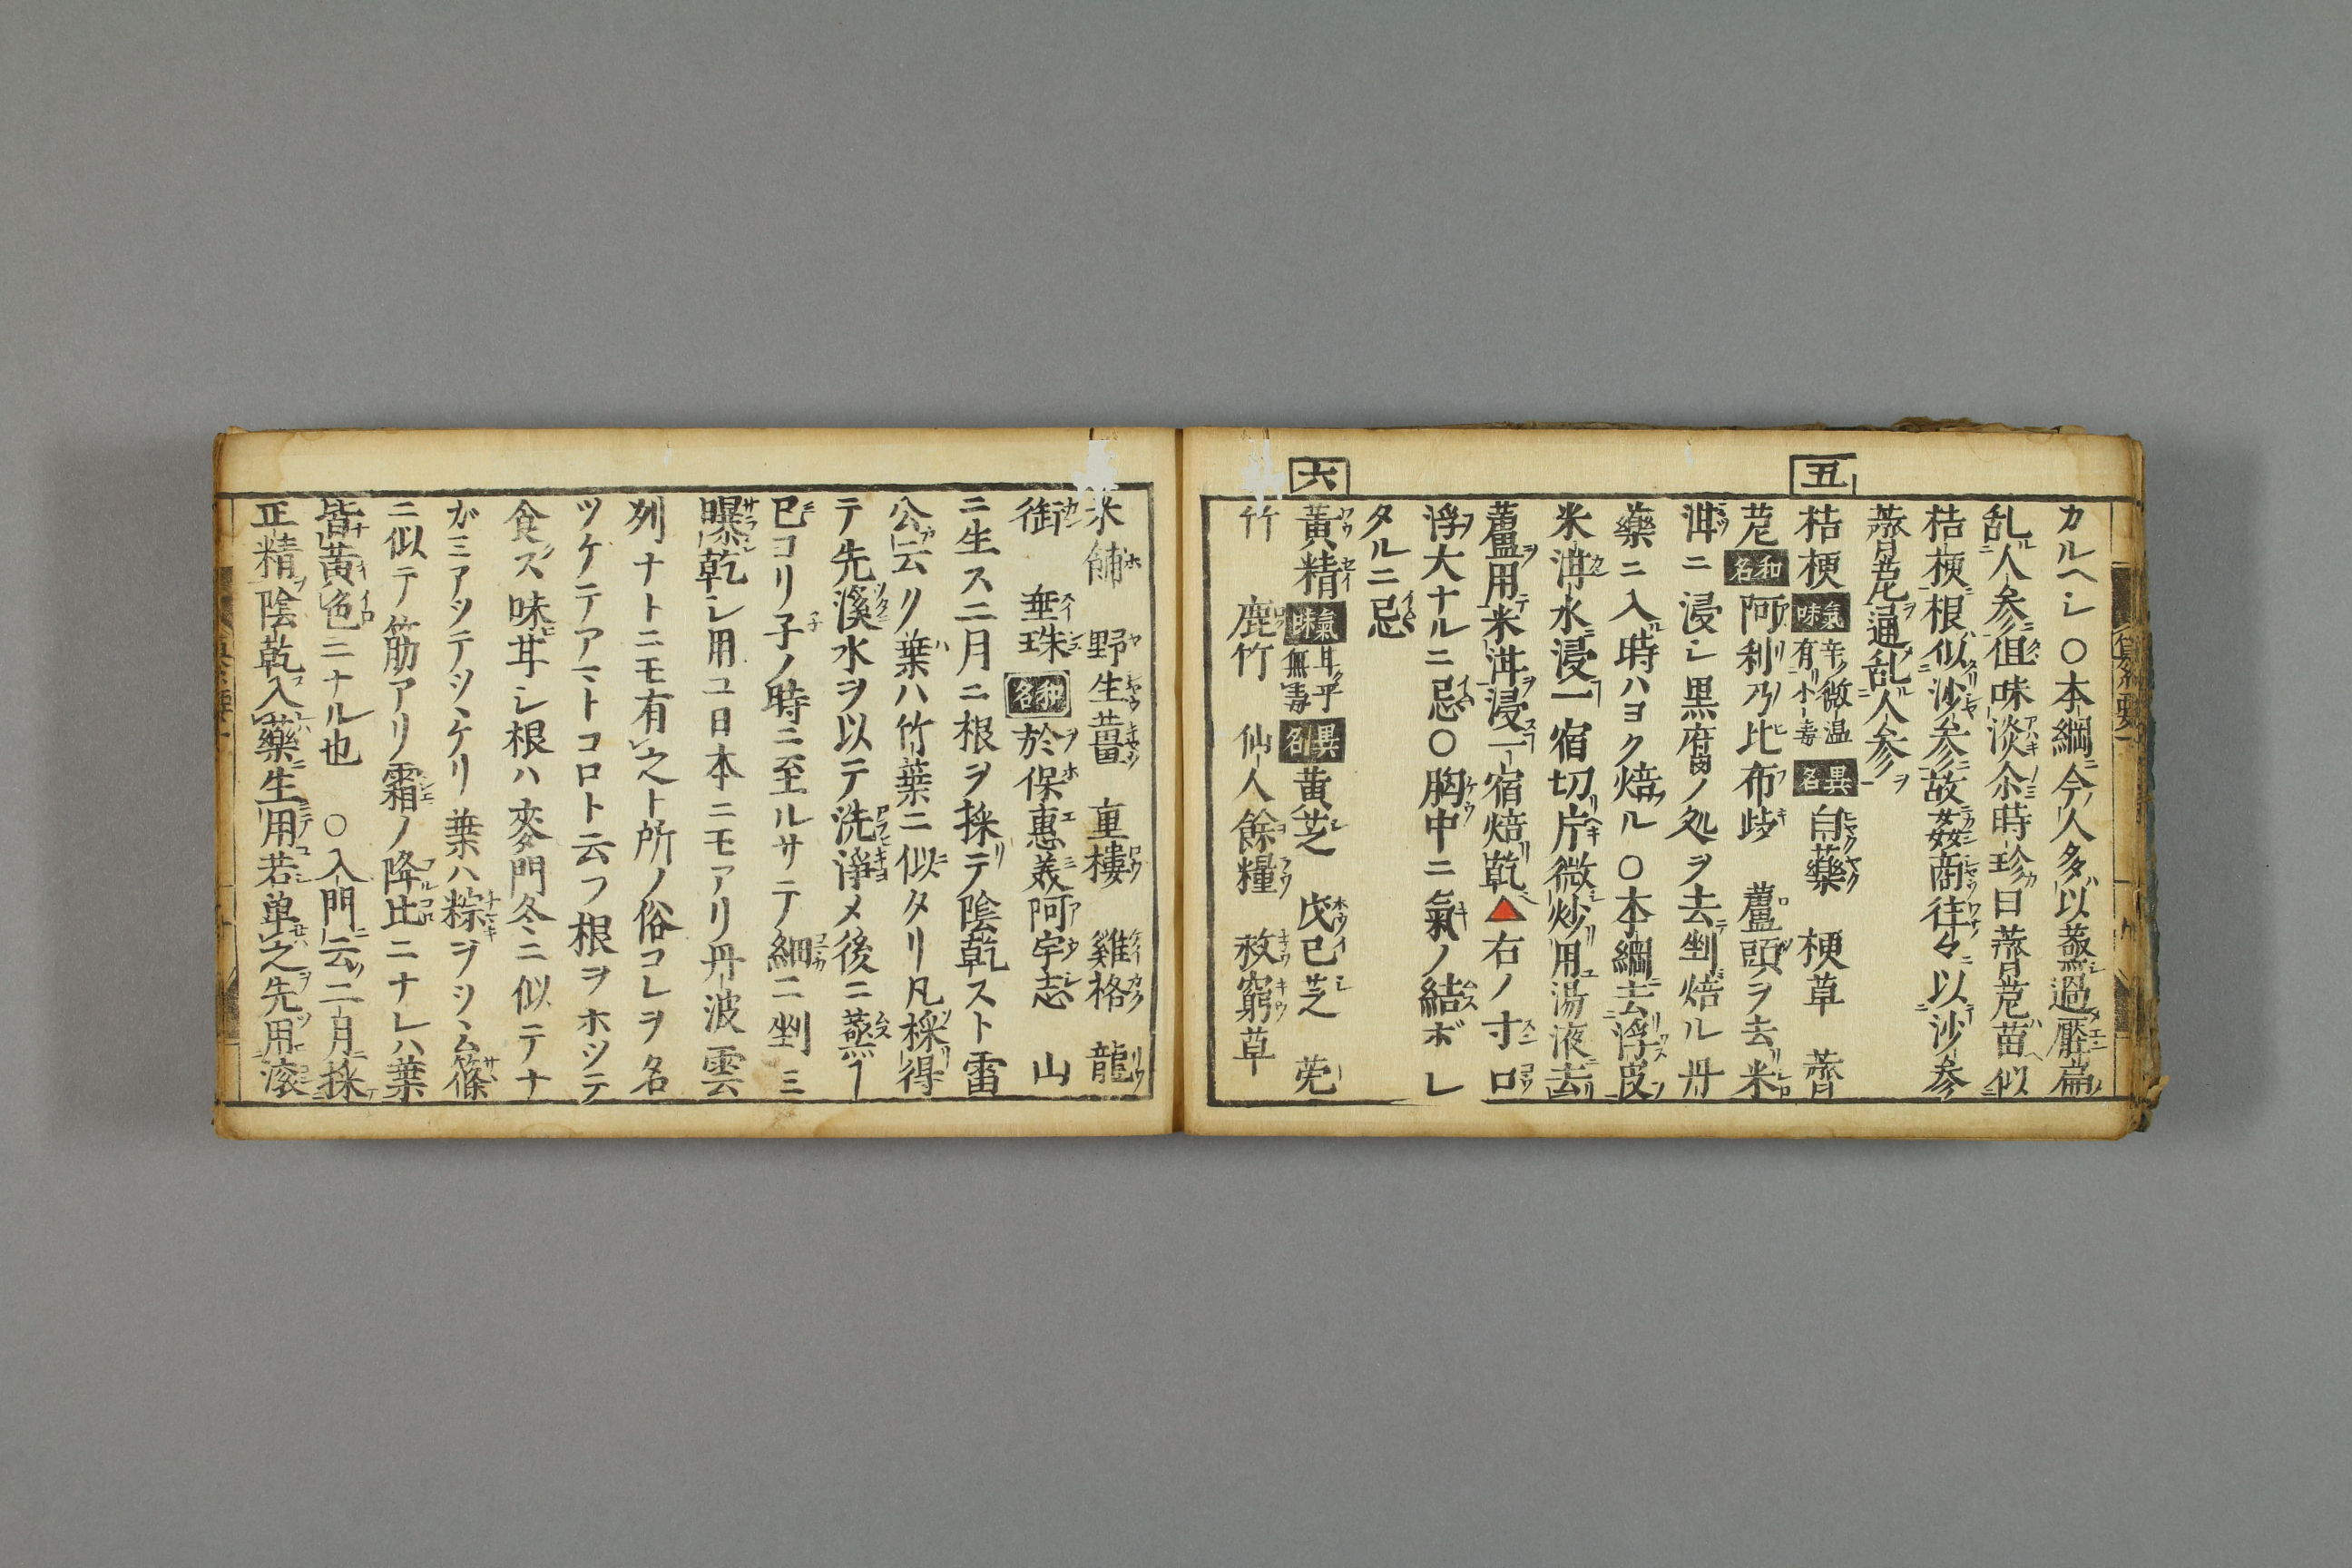 五
六
カルヘシ○本綱ニ今人多以蒸過壓扁
乱人参但味淡尒時珍曰薺苨苗似
桔梗根似沙参故姦商往々以沙参
薺苨通乱人参
桔梗 氣味 辛微温有小毒 異名 白藥 梗草 薺
苨 和名 阿利乃比布岐 蘆頭ヲ去米
泔ニ浸シ黒腐ノ処ヲ去剉焙ル丹
藥ニ入時ハヨク焙ル○本綱去浮皮
米泔水浸一宿切片微炒用湯液去
蘆用米泔浸一宿焙乾▲右ノ寸口
浮大ナルニ忌○胸中ニ氣ノ結ボレ
タルニ忌
黄精 氣味 甘平無毒 異名 黄芝 戊己芝 菟
竹 鹿竹 仙人餘糧 救窮草
米餔 野生薑 重樓 雞格 龍
銜 垂珠 和名 於保惠美 阿宇志 山
ニ生ス二月ニ根ヲ採テ陰乾スト雷
公云リ葉ハ竹葉ニ似タリ凡採得
テ先溪水ヲ以テ洗淨メ後ニ蒸ヿ
巳コリ子ノ時ニ至ルサテ細ニ剉ミ
曝乾シ用ユ日本ニモアリ丹波雲
列ナトニモ有之ト所ノ俗コレヲ名
ツケテアマトコロト云フ根ヲホツテ
食ス味甘シ根ハ麥門冬ニ似テナ
ガミアツテツヽケリ葉ハ粽ヲツヽム篠
ニ似テ筋アリ霜ノ降比ニナレハ葉
皆黄色ニナル也 ○入門云二月採
正精陰乾入藥生用若単之先用滚